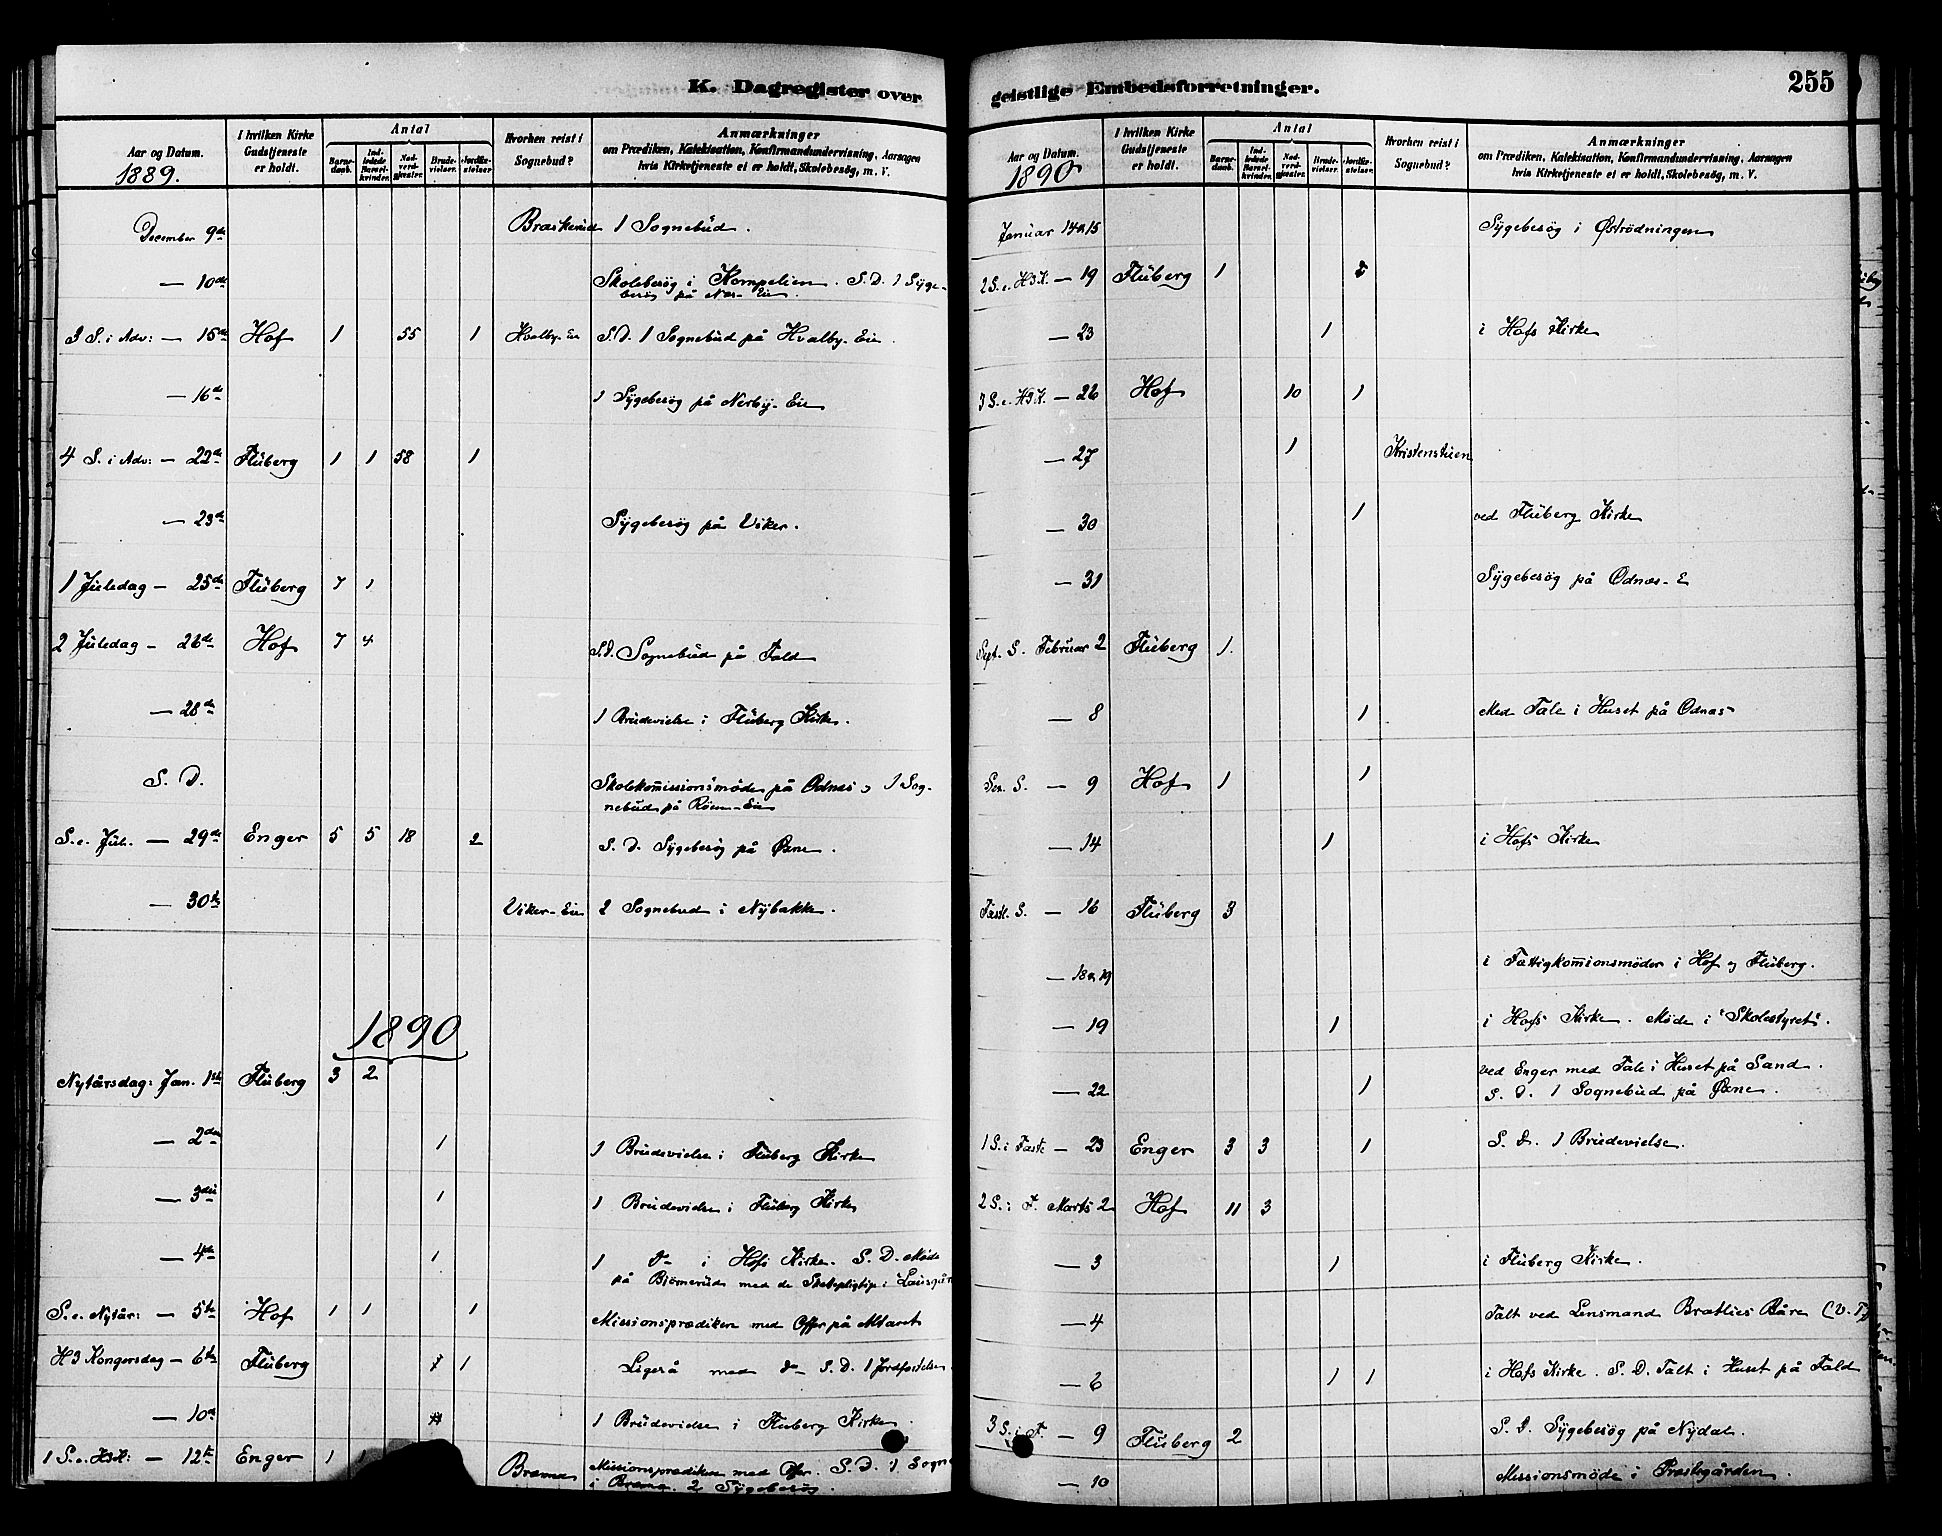 K. Dagregister over
Aar og Datum. 1889.
I hvilken Kirke Gudstjeneste er holdt.
Antal
Barne-daab.
Ind-ledede Barsel-kvinder.
Nad-verd-gjæster.
Brude-vielser.
Jordfæ-stelser
Hvorhen reist i Sognebud?
Anmærkninger
om Prædiken, Katekisation, Konfirmandundervisning, Aarsagen
hvis Kirketjeneste ei er holdt, Skolebesøg, m. V.
December 9de Braskerud 1 Sognebud.
— 10de Skolebesøg i Kompelien. S.D. 1 Syge-
besøg på Næs-Eie.
3 S. i Adv: — 15de Hof 1 55 1 Hvalby-Eie S.D. 1 Sognebud på Hvalby-Eie.
— 16de 1 Sygebesøg på Nerby-Eie
4 S. i Adv: — 22de Fluberg 1 1 58 1
— 23de Sygebesøg på Viker.
1 Juledag — 25de Fluberg 7 1
2 Juledag — 26de Hof 7 4 S.D. Sognebud på Fald
— 28de 1 Brudevielse i Fluberg Kirke.
S. D. Skolekommissionsmøde på Odnæs, 1 Sog-
nebud på Røen-Eie
S.e. Jul. — 29de Enger 5 5 18 2 S. D. Sygebesøg på Øxne.
— 30te Viker-Eie 2 Sognebud i Nybakke.
1890
Nytårsdag: Jan. 1ste Fluberg 3 2
— 2den 1 1 Brudevielse i Fluberg Kirke
— 3die 1 1 Brudevielse i Fluberg Kirke
— 4de 1 1 do i Hofs Kirke. S. D. Møde
på Bjørnerud med de Skattepligtige i
S.e. Nytår: — 5te Hof 1 1 1 Missionsprædiken med Offer på Altaret
H3 Kongersdag — 6te Fluberg 1 1 Ligeså med do S. D. 1 Jordfæstelse.
— 10de 1 Brudevielse i Fluberg Kirke.
1 S.e. H3K: — 12te Enger 1 Missionsprædiken med Offer. S. D. 1 Sogne
2 Sygebesøg.
geistlige Embedsforretninger.
255
Aar og Datum. 1890
I hvilken Kirke Gudstjeneste er holdt.
Antal
Barne-daab.
Ind-ledede Barsel-kvinder.
Nad-verd-gjæster.
Brude-vielser.
Jordfæ-stelser
Hvorhen reist i Sognebud?
Anmærkninger
om Prædiken, Katekisation, Konfirmandundervisning, Aarsagen
hvis Kirketjeneste ei er holdt, Skolebesøg, m. V.
Januar 14 & 15 Sygebesøg i Østrødningen
2 S.e. H3K. — 19 Fluberg 1
— 23 1 i Hofs Kirke
3 S.e. H3K. — 26 Hof 10 1
— 27 1 Kristenstuen
— 30 1 ved Fluberg Kirke
— 31 Sygebesøg på Odnæs-E
Sept. S. Februar 2 Fluberg 1.
— 8 1 Med Tale i Huset på Odnæs
Sex. S. — 9 Hof 1 1
— 14 1 i Hofs Kirke
Fastl. S. — 16 Fluberg 3
— 18 & 19 i Fattigkommionsmøder i Hof og Fluberg.
— 19 1 i Hofs Kirke. Møde i "Skolestyret".
— 22 1 ved Enger med Tale i Huset på Sand.
S. D. 1 Sognebud på Øxne.
1 S. i Faste — 23 Enger 3 3 1 S. D. 1 Brudevielse.
2 S. i F. Marts 2 Hof 11 3
— 3 1 i Fluberg Kirke.
— 4 Talt ved Lensmand Bratlies Båre (V.T)
— 6 1 1 i Hofs Kirke. S. D. Talt i Huset på Fald
3 S. i F. — 9 Fluberg 2 S. D. Sygebesøg på Nydal.
— 10 Missionsmøde i Præstegården.